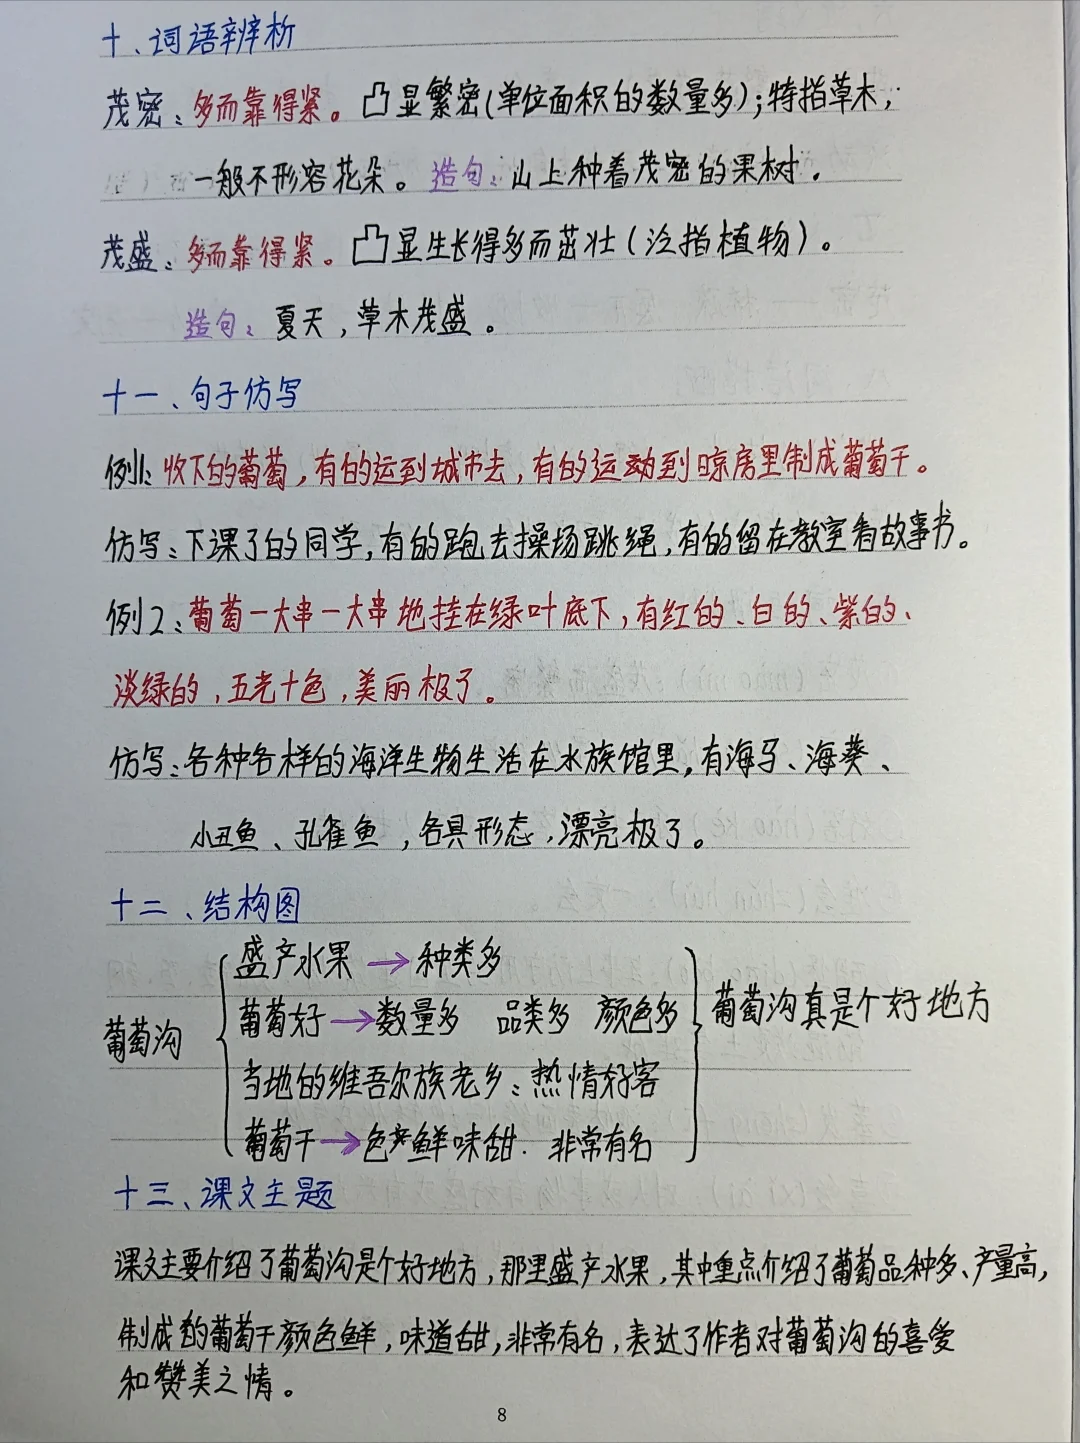 十、词语辨析
茂密:多而靠得紧。凸显繁密(单位面积的数量多);特指草木,
一般不形容花朵。造句:山上种着茂密的果树.
茂盛:多而靠得紧。凸显生长得多而茁壮(泛指植物)。
造句:夏天,草木茂盛。
十一、句子仿写
例1:收下的葡萄,有的运到城市去,有的运动到晾房里制成葡萄干。
仿写:下课了的同学,有的跑去操场跳绳,有的留在教室看故事书。
例2:葡萄一大串一大串地挂在绿叶底下,有红的、白的、紫的、
淡绿的,五光十色,美丽极了。
仿写:各种各样的海洋生物生活在水族馆里,有海马、海葵、
小丑鱼、孔雀鱼,各具形态,漂亮极了。
十二、结构图
盛产水果→种类多
葡萄好→数量多 品类多 颜色多
葡萄沟真是个好地方
葡萄沟
当地的维吾尔族老乡:热情好客
葡萄干→色产鲜味甜.非常有名
十三、课文主题
课文主要介绍了葡萄沟是个好地方,那里盛产水果,其中重点介绍了葡萄品种多、产量高,
制成的葡萄干颜色鲜,味道甜,非常有名,表达了作者对葡萄沟的喜爱
和赞美之情。
8